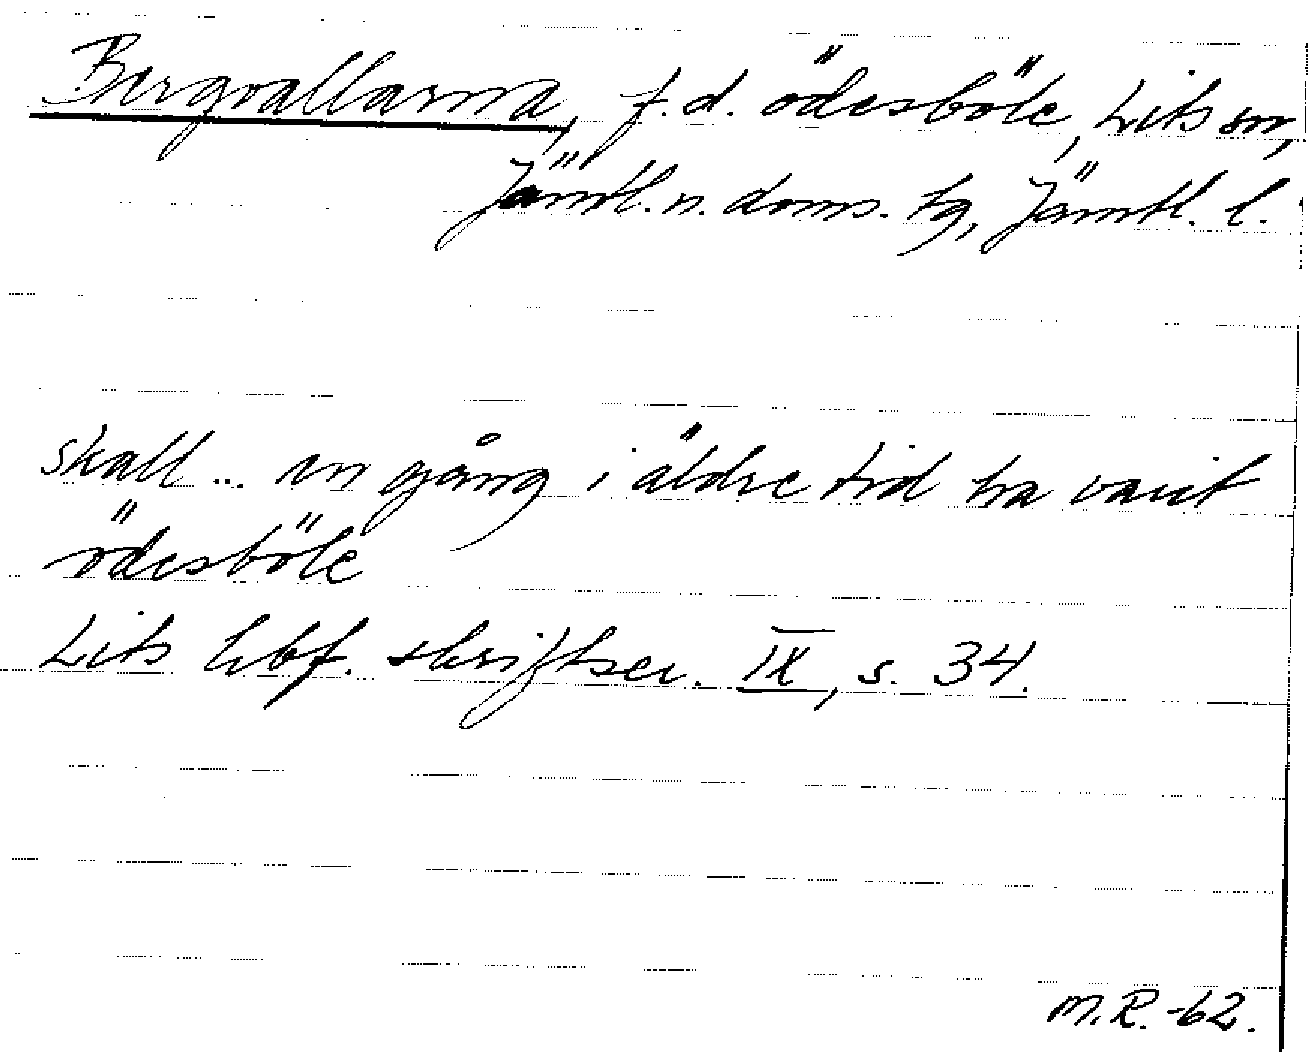 Bergvallarna, f.d. ödesböle, Lits sn,
Jämtl. n. doms. tg, Jämtl. l.
skall... en gång i äldre tid ha varit
ödesböle
Lits hbf. skriftser. IX, s. 34.
M.R. -62.